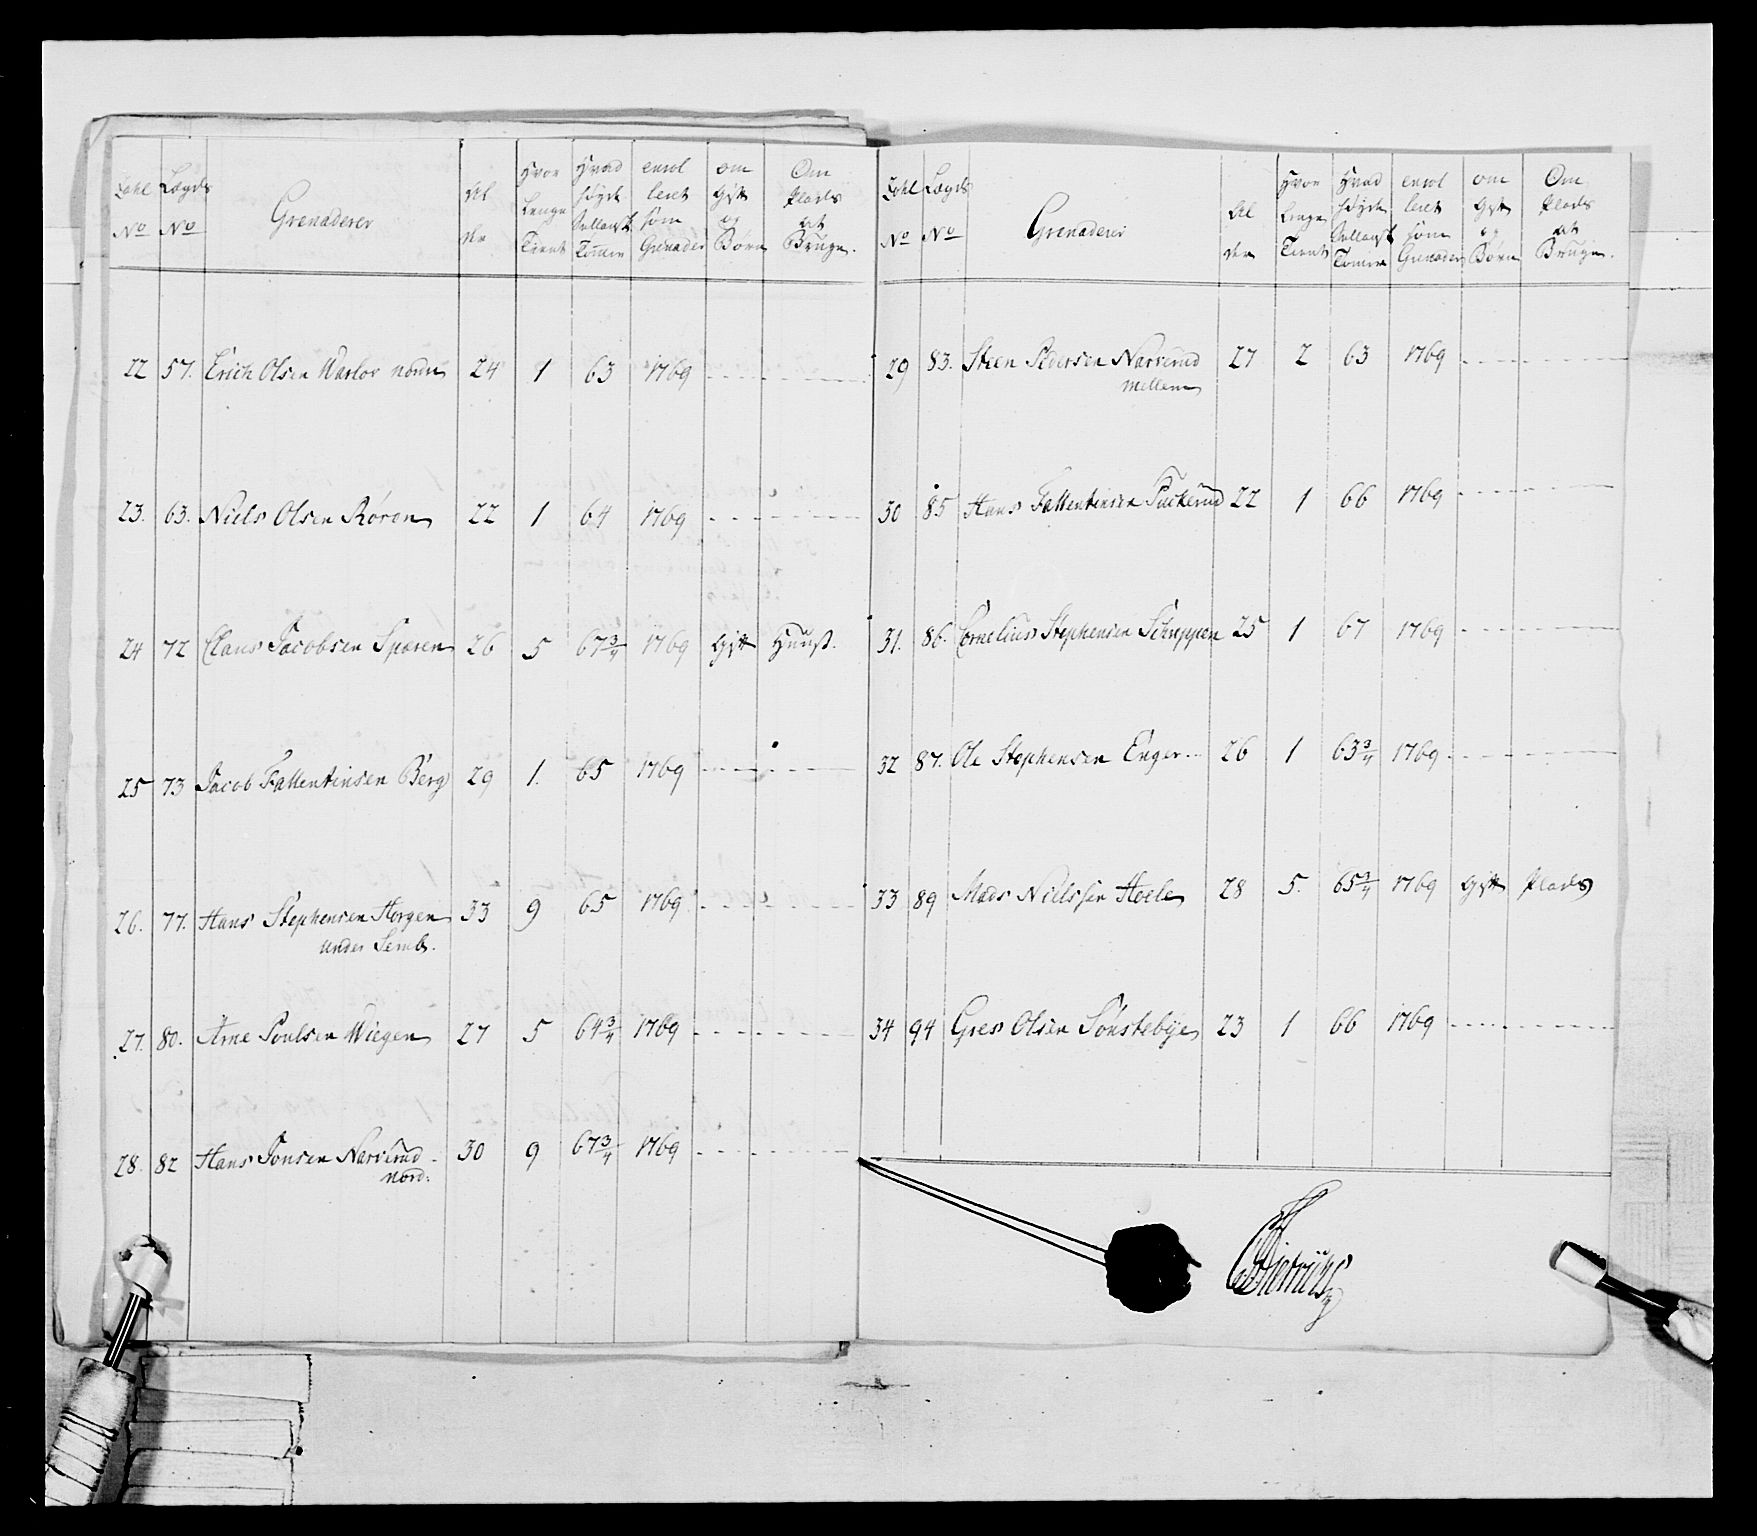 Tahl No | Lægds No | Grenaderer | Al der | Hvor Lenge Tient | Hvad Høyde Sellandsk Tomer | enrol leret som Grenader | om Gift og Børn | Om Plads at Bruge.
22 57. Erich Olsen Warlor nordre 24 1 63 1769
23. 63. Niels Olsen Røron 22 1 64 1769
24 72 Clans Jacobsen Sparen 26 5 67¾ 1769 Gift Huust.
25 73 Jacob Fallentinsen Berg 29 1. 65 1769
26. 77. Hans Stephensen Horgen 33 9 65 1769
under Semb.
27. 80. Arne Poulsen Wiegen 27 5 64¾ 1769
28. 82 Hans Jonsen Narverud 30 9 67¾ 1769
nord.
Tahl No | Lægds No | Grenaderer | Al der | Hvor Lenge Tient | Hvad Høyde Sellandsk Tomer | enrol leret som Grenader | om Gift og Børn | Om Plads at Bruge.
29 83. Steen Pedersen Narverud 27 2 63 1769
mellem
30 85 Hans Fallentinsen Puckerud 22 1 66 1769
31. 86. Cornelius Stephensen Schreppen 25 1 67 1769
32 87. Ole Stephensen Enger 26 1 63¾ 1769
33 89 Mads Nielssen Hoele 28 5. 65¾ 1769 Gift Plads
34 94 Gres Olsen Sønstebye 23 1 66 1769